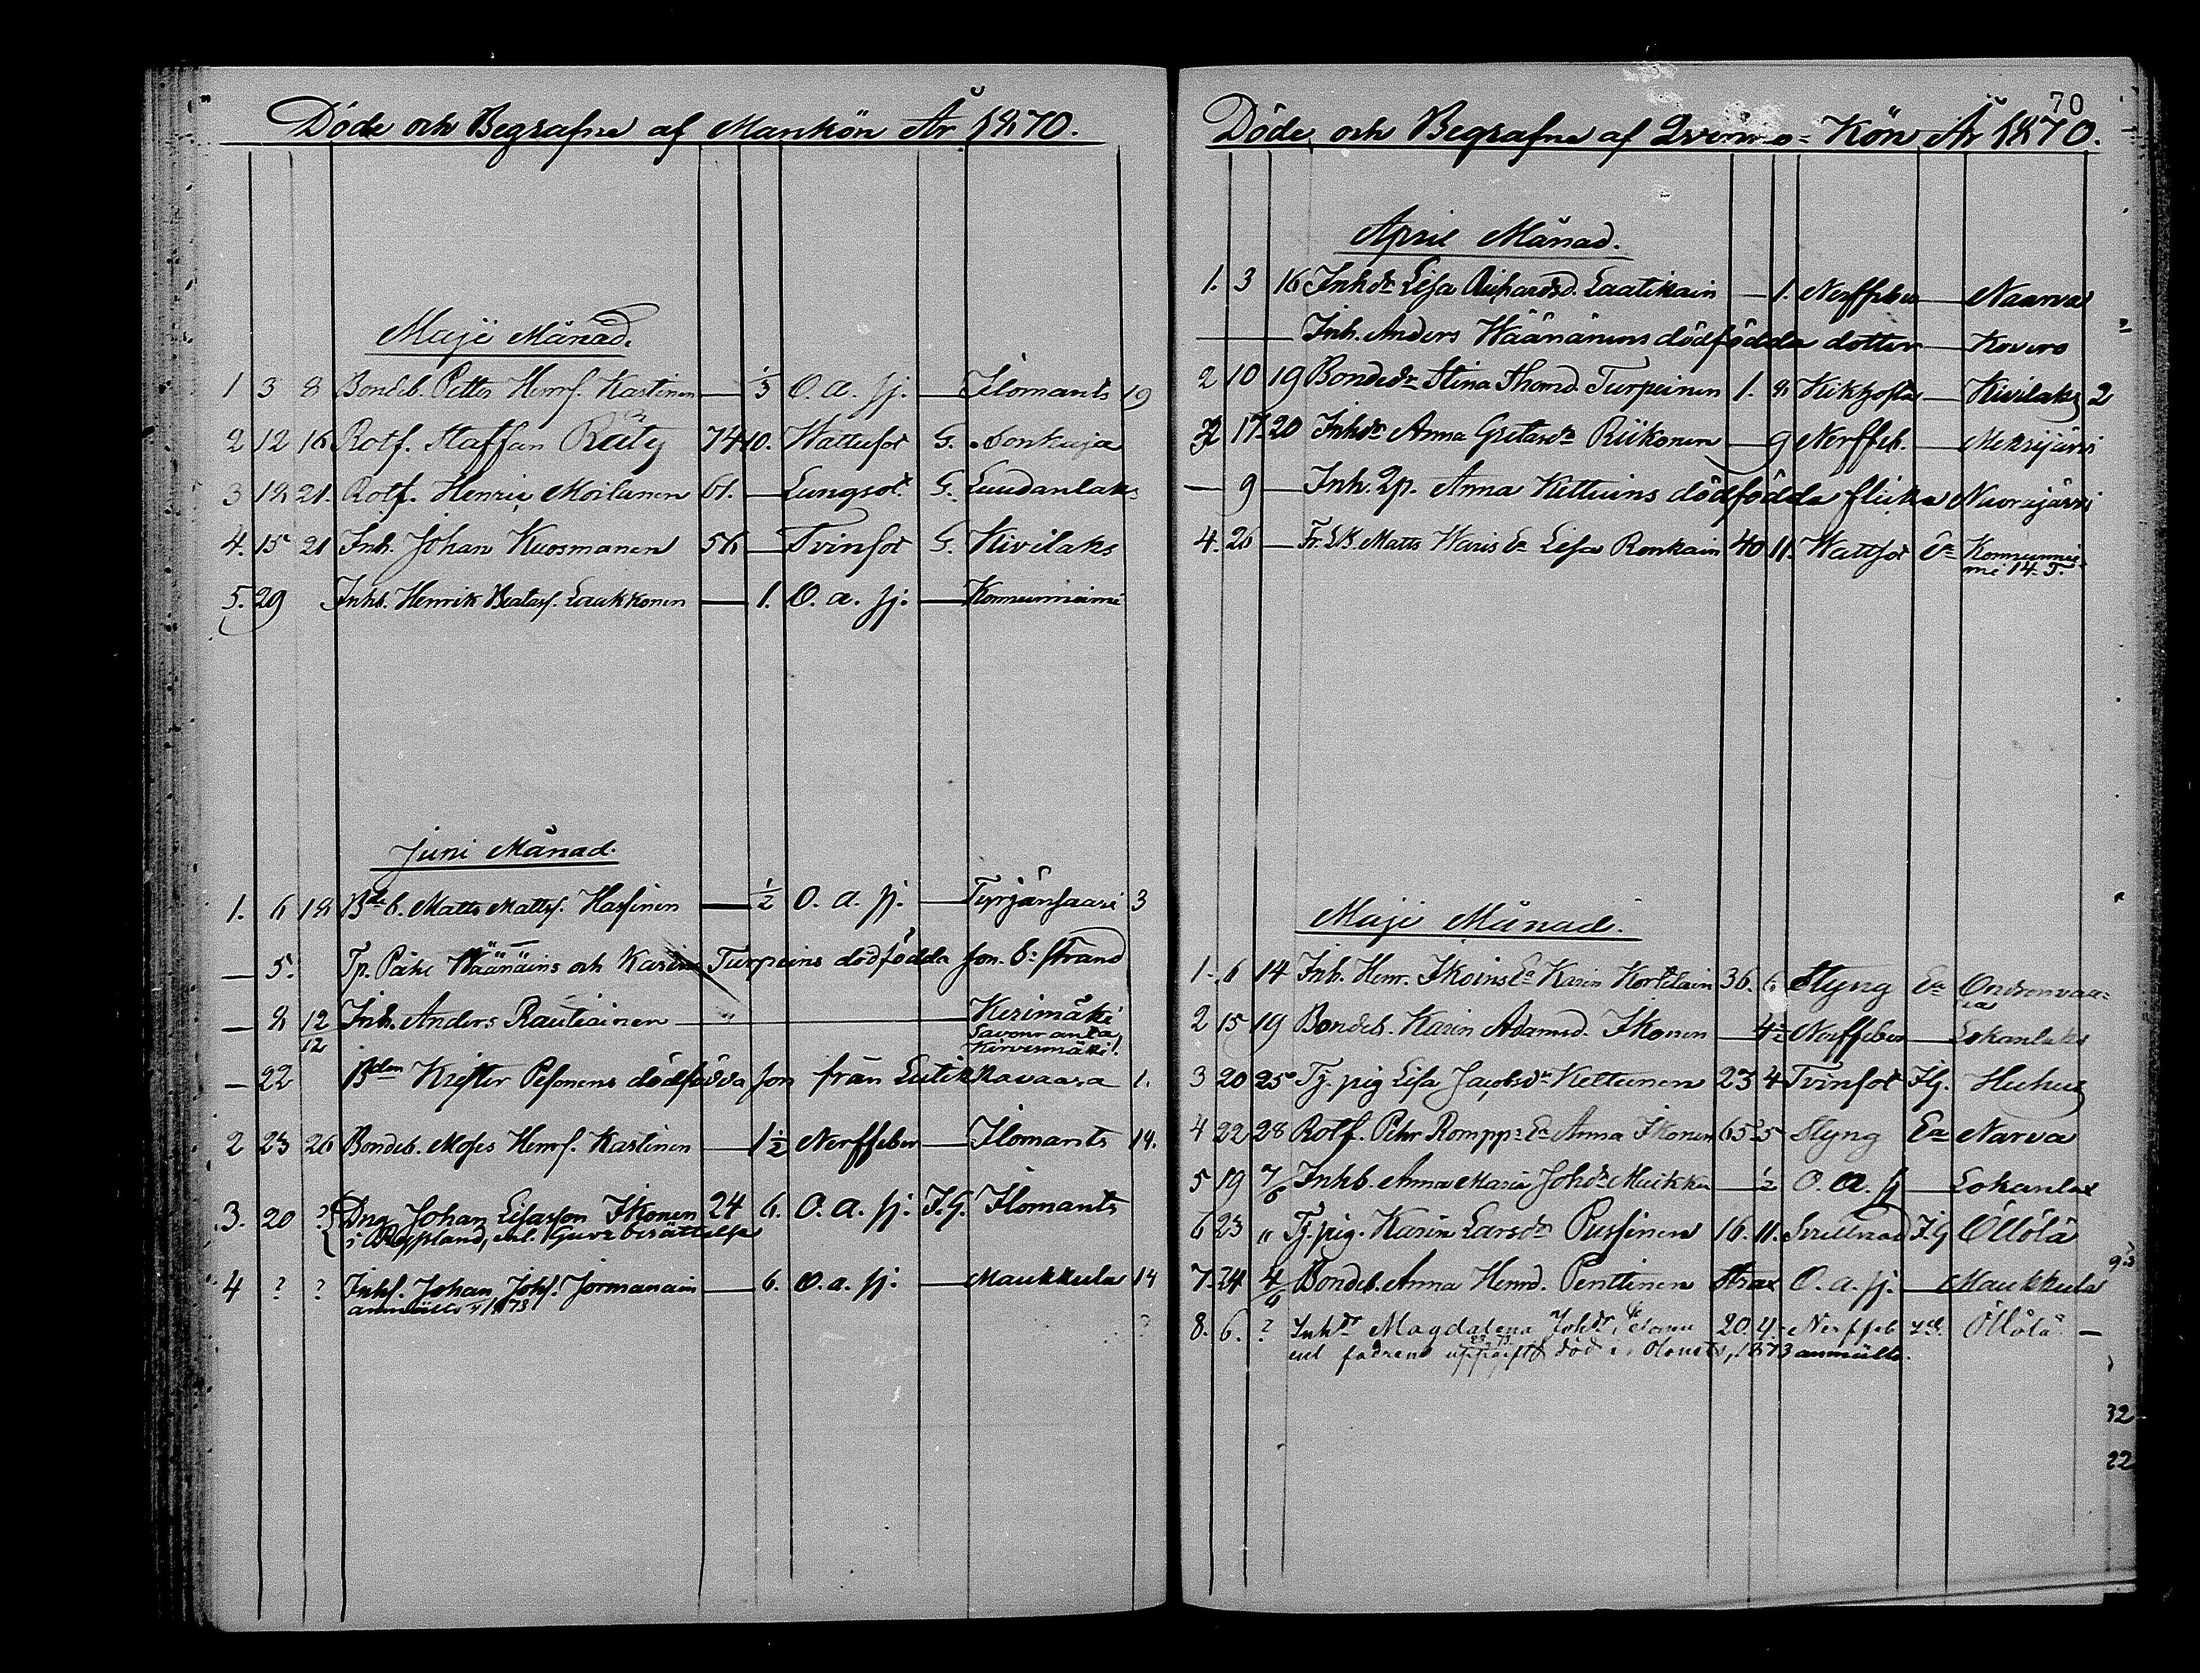 Döde och Begrafne af Mankön År 1870.
Maji Månad.
1 3 8 Bondeb. Petter Henrs. Kastinen — 1/3 O. a. sj. — Ilomants 19
2 12 16 Rotf. Staffan 74 10. Wattusot G. Sonkaja
3 18 21. Rotf. Henric Moilanen 61. — Lungsot G. Luudanlaks
4. 15 21 Inh. Johan Kuosmanen 56 — Tvinsot G. Kivilaks
5. 29 Inhb. Henrik Beatas. Laukkonen — 1. O. a. sj. — Konnunniemi
Juni Månad.
1. 6 18 Bdeb. Matts Mattss. Hassinen — 1/2 O. a. sj. — Tyrjänsaari 3
— 5. Tp. Påhl Wäänäins och Karin Turpeins dödfödda son. E. strand
— 8 12/12 Inh. Anders Rautiainen — Kerimäki
Savonranta
Kirvesmäki!
— 22 Bden Krister Pesonens dödfödda son från Lutikkavaara 1.
2 23 26 Bondeb. Moses Henrs. Kastinen — 1 1/2 Nerffeber — Ilomants 14.
3. 20 ? Dng Johan Lisasson Ikonen 24 6. O. a. sj. I. G. Ilomants
i Ryssland, enl. Guvr berättelse
4 ? ? Inhs. Johan Johs. Jormanain — 6. O. a. sj. — Maukkula 14
anmältes 1873
70
Döde och Begrafne af Qvinno-Kön År 1870.
April Månad.
1. 3 16 Inhdr Lisa Richardsd. Laatikain — 1. Nerffeber — Naarva
— Inh. Anders Wäänänens dödfödda dotter — Kovero
2 10 19 Bondedr Stina Thomd. Turpeinen 1. 8 Kikhosta — Kivilaks 2
3 17 20 Inhdr Anna Gretasdr Riikonen — 9 Nerffeb. — Mekrijärvi
— 9 — Inh. Qp. Anna Kettuins dödfödda flicka Nuorajärvi
4. 26 — Matts Waris Ea Lisa Ronkain 40 11. Wattsot Ea Konnunnie-
mi 14. J.
Maji Månad.
1. 6 14 Inh. Henr. Ikoins Ea Karin Kortelain 36. 6. Styng Ea Ondronvaa-
ra
2 15 19 Bondeb. Karin Adamsd. Ikonen — 4 1/2 Nerffeber — Lokanlaks
3 20 25 Tj. pig Lisa Jacobsdr Kettunen 23 4 Tvinsot I.G. Huhus
4 22 28 Rotf. Pehr Rompps Ea Anna Ikonen 65 5 Styng Ea Narva
5 19 7/6 Inhb. Anna Maria Johdr Muikku — 1/2 O. a. sj — Lokanlax
6 23 " Tj. pig. Karin Larsdr Pursinen 16. 11. I G Öllölä
7. 24 4/6 Bondeb. Anna Henrd. Penttinen Strax O. a. sj. — Maukkula
8. 6. ? Inhdr Magdalena Johdr 20. 4. Nerffeb Öllölä —
enl fadrens uppgift död i Olonets, 1873 anmälts.
32
22